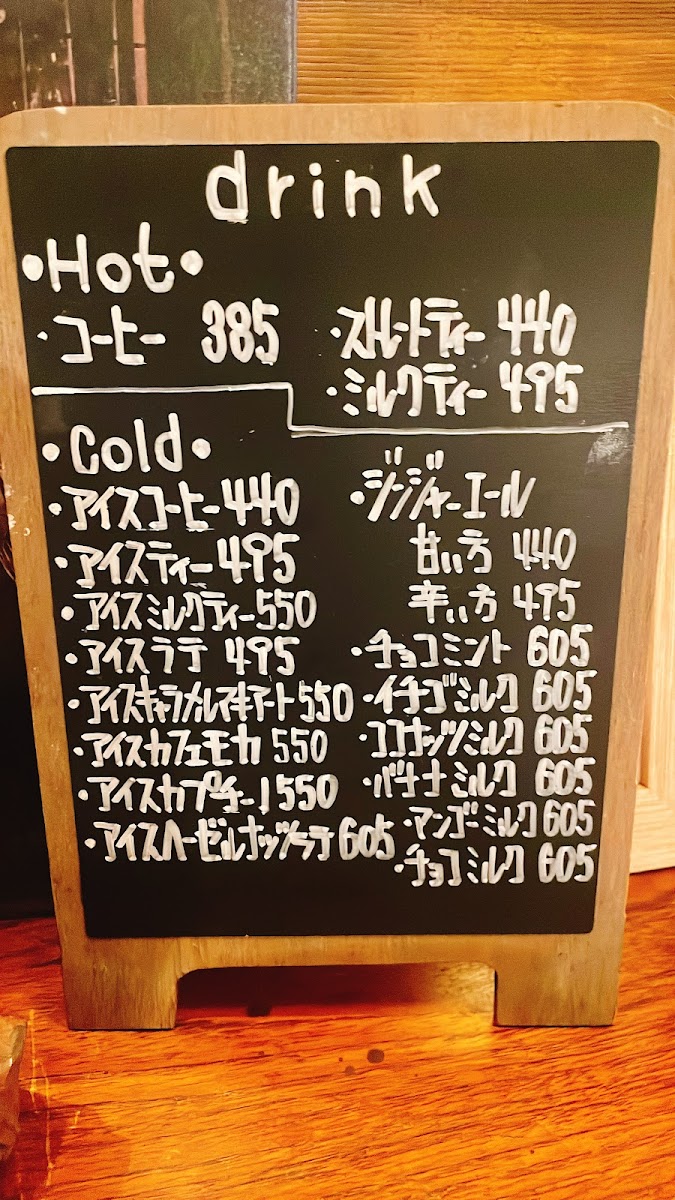 drink
・Hot・
・コーヒー 385
・ストレートティー 440
・ミルクティー 495
・Cold・
・アイスコーヒー 440
・アイスティー 495
・アイスミルクティー 550
・アイスラテ 495
・アイスキャラメルマキアート 550
・アイスカフェモカ 550
・アイスカプチーノ 550
・アイスヘーゼルナッツラテ 605
・ジンジャーエール
甘い方 440
辛い方 495
・チョコミント 605
・イチゴミルク 605
・ココナッツミルク 605
・バナナミルク 605
・マンゴーミルク 605
・チョコミルク 605